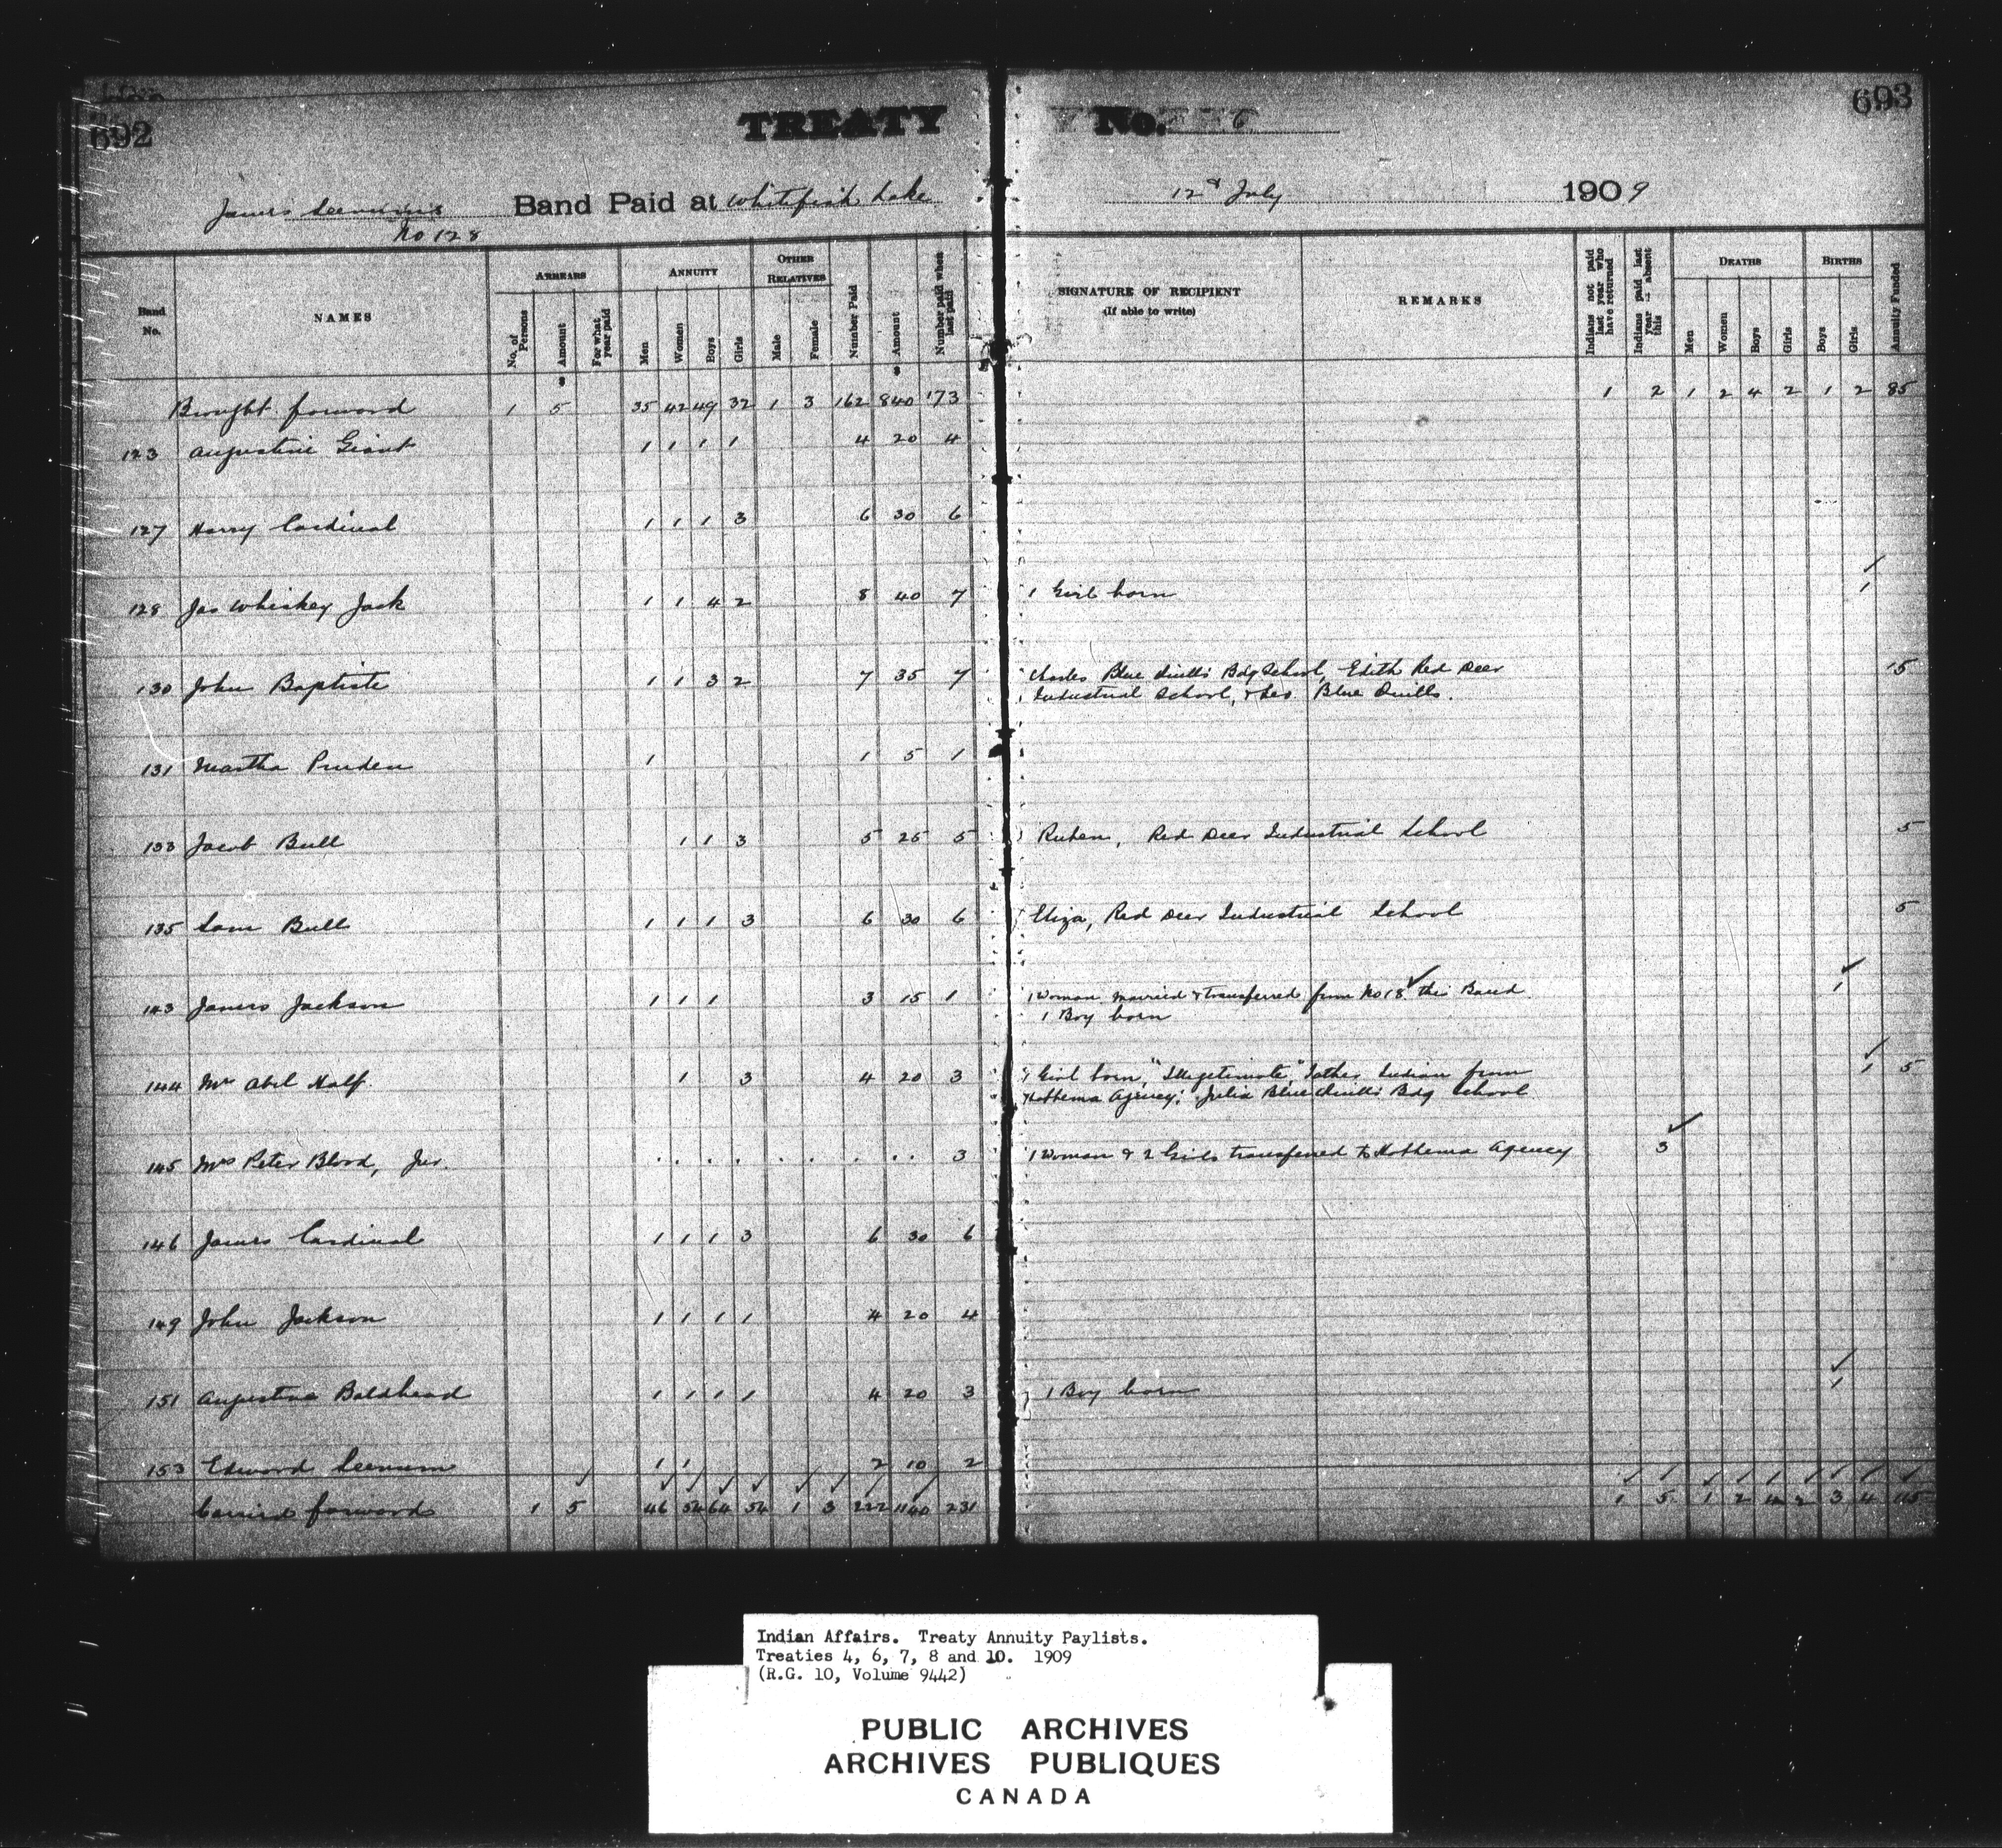 692
TREATY No. 6
693
James Seenum's Band Paid at Whitefish Lake 12th July 1909
No 128
Band No. NAMES ARREARS No. of Persons Amount For what year paid ANNUITY Men Women Boys Girls OTHER RELATIVES Male Female Number Paid Amount Number paid when last paid SIGNATURE OF RECIPIENT (If able to write) REMARKS Indians not paid last year who have returned Indians paid last year absent this DEATHS Men Women Boys Girls BIRTHS Boys Girls Annuity Funded
Brought forward 1 5 35 42 49 32 1 3 162 840 173 1 2 1 2 4 2 1 2 85
123 Augustine Giant 1 1 1 1 4 20 4
127 Harry Cardinal 1 1 1 3 6 30 6
128 Jas Whiskey Jack 1 1 4 2 8 40 7 1 Girl born 1
130 John Baptiste 1 1 3 2 7 35 7 Charles Blue Quills Bdg School, Edith Red Deer 15
Industrial School, & Blue Quills.
131 Martha Pruden 1 1 5 1
133 Jacob Bull 1 1 3 5 25 5 Ruben, Red Deer Industrial School 5
135 Sam Bull 1 1 1 3 6 30 6 Eliza, Red Deer Industrial School 5
143 James Jackson 1 1 1 3 15 1 1 Woman married & transferred from No 18 this Band. 1
1 Boy born
144 Mrs Abel Half 1 3 4 20 3 1 Girl born, "Illegitimate," Father Indian from 1 5
Hobbema Agency; Julia Blue Quills Bdg School
145 Mrs Peter Blood, Jnr. 3 1 Woman & 2 Girls transferred to Hobbema Agency 3
146 James Cardinal 1 1 1 3 6 30 6
149 John Jackson 1 1 1 1 4 20 4
151 Augustine Baldhead 1 1 1 1 4 20 3 1 Boy born 1
153 Edward Seenum 1 1 2 10 2
Carried forward 1 5 46 54 64 54 1 3 222 1140 231 1 5 1 2 4 2 3 4 115
Indian Affairs. Treaty Annuity Paylists.
Treaties 4, 6, 7, 8 and 10. 1909
(R.G. 10, Volume 9442)
PUBLIC ARCHIVES
ARCHIVES PUBLIQUES
CANADA